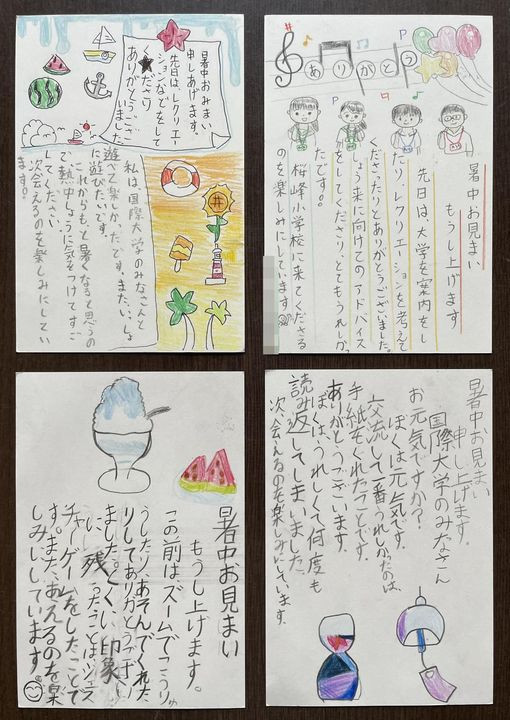 暑中おみまい
申しあげます。
先日は、レクリエー
ションなどをして
くださり
ありがとうござ
いました。
私は、国際大学のみなさんと
遊べて楽しかったです。またいっしょ
に遊びたいです。
これからもっと暑くなると思うの
で、熱中しょうに気をつけてすご
してください。
次会えるのを楽しみにしてい
ます。
ありがとう
暑中お見まい
もうし上げます
先日は、大学を案内をし
たり、レクリエーションを考えて
くださったりとありがとうございました。
しょう来に向けてのアドバイス
をしてくださりとてもうれしかっ
たです。
桜峰小学校に来てくださる
のを楽しみにしています。
暑中お見まい
もうし上げます。
この前は、ズームでこうりゅ
うしたり、あそんでくれた
りしてありがとうござい
ました。とくい印象
に残ったことはジェス
チャーゲームをしたことで
す。また、あえるのを楽
しみにしています。
暑中お見まい
申し上げます。
国際大学のみなさん
お元気ですか？
ぼくは元気です。
交流して一番うれしかったのは、
手紙をくれたことです。
ありがとうございます。
ぼくは、うれしくて何度も
読み返してしまいました。
次会えるのを楽しみにしています。